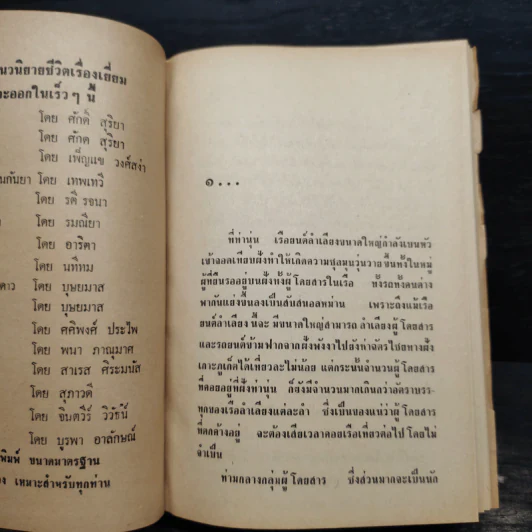 นวนิยายชีวิตเรื่องเยี่ยม
จะออกในเร็วๆ นี้
โดย ศักดิ์ สุริยา
โดย ศักดิ์ สุริยา
โดย เพ็ญแข วงศ์สง่า
นกันยา โดย เทพเทวี
โดย รติ รจนา
โดย รมณียา
โดย อาริตา
โดย นทีทม
ดาว โดย บุษยมาส
โดย บุษยมาส
โดย ศศิพงศ์ ประไพ
โดย พนา ภาณุมาศ
โดย สาเรส ศิระมนัส
โดย สุภาวดี
โดย จินตวีร์ วิวัธน์
โดย บูรพา อาลักษณ์
พิมพ์ ขนาดมาตรฐาน
อง เหมาะสำหรับทุกท่าน
๑...
ที่ท่านุ่น เรือยนต์ลำเลียงขนาดใหญ่กำลังเบนหัว
เข้าจอดเทียบฝั่งทำให้เกิดความชุลมุนวุ่นวายขึ้นทั้งในหมู่
ผู้ที่ยืนรออยู่บนฝั่งทั้งผู้โดยสารในเรือ ทั้งรถทั้งคนต่าง
พากันแย่งขึ้นลงเป็นสับสนอลหม่าน เพราะถึงแม้เรือ
ยนต์ลำเลียงนี้จะมีขนาดใหญ่สามารถลำเลียงผู้โดยสาร
และรถยนต์ข้ามฟากจากฝั่งพังงาไปยังท่าฉัตรไชยทางฝั่ง
เกาะภูเก็ตได้เที่ยวละไม่น้อย แต่กระนั้นจำนวนผู้โดยสาร
ที่คอยอยู่ที่ฝั่งท่านุ่น ก็ยังมีจำนวนมากเกินกว่าอัตราบรร-
ทุกของเรือลำเลียงแต่ละลำ ซึ่งเป็นของแน่ว่าผู้โดยสาร
ที่ตกค้างอยู่ จะต้องเสียเวลาคอยเรือเที่ยวต่อไปโดยไม่
จำเป็น
ท่ามกลางกลุ่มผู้โดยสาร ซึ่งส่วนมากจะเป็นนัก